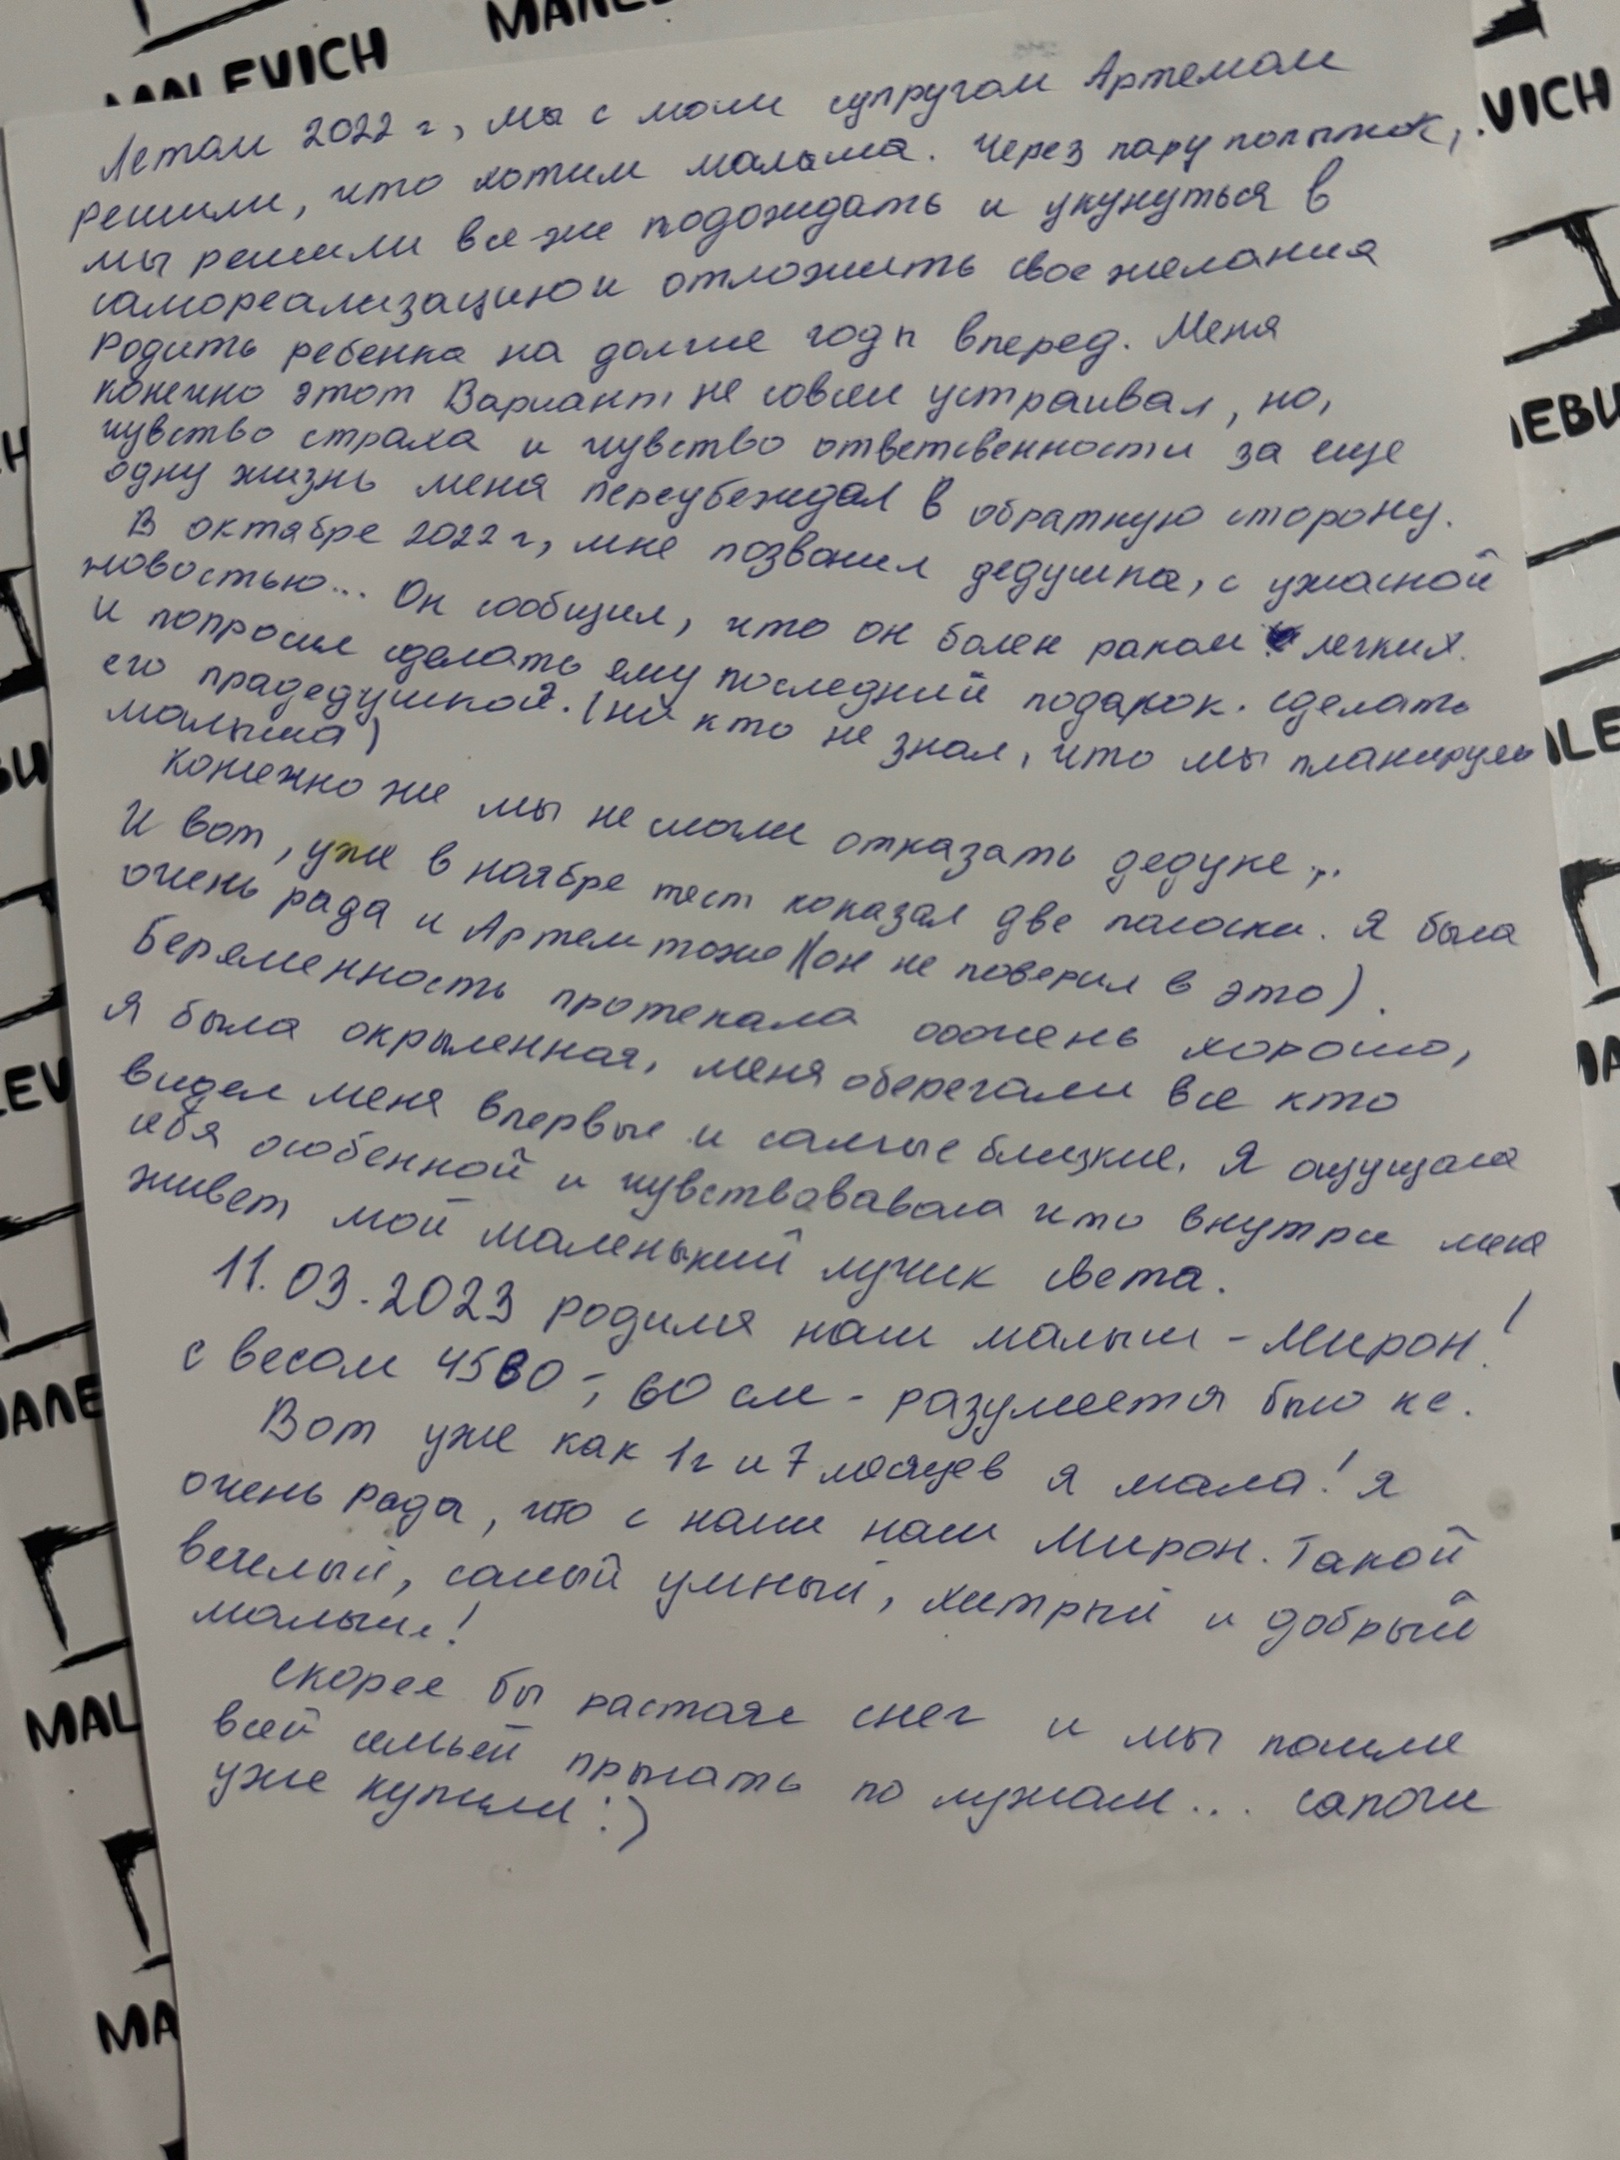 MALEVICH
Летом 2022 г, мы с моим супругом Артемом
решили, что хотим малыша. Через пару попыток,
мы решили все же подождать и укунуться в
самореализацию и отложить свое желания
родить ребенка на долгие годы вперед. Меня
конечно этот Вариант не совсем устраивал, но,
чувство страха и чувство ответсвенности за еще
одну жизнь меня переубеждал в обратную сторону.
В октябре 2022 г, мне позвонил дедушка, с ужасной
новостью... Он сообщил, что он болен раком легких.
и попросил сделать ему последний подарок. сделать
его прадедушкой. (ни кто не знал, что мы планируем
малыша)
Конежно же мы не могли отказать дедуке...
И вот, уже в ноябре тест показал две полоски. Я была
очень рада и Артем тоже (он не поверил в это).
Беременность протекала ооочень хорошо,
Я была окрыленная, меня оберегали все кто
видел меня впервые и самые близкие. Я ощущала
себя особенной и чувствававала что внутри меня
живет мой маленький лучик света.
11.03.2023 родился наш малыш - Мирон!
с весом 4560 -, 60 см - разумеется было кс.
Вот уже как 1г и 7 месяцев я мама! я
очень рада, что с нами наш Мирон. Такой
веселый, самый умный, хитрый и добрый
малыш!
скорее бы растаял снег и мы пошли
всей семьей прыгать по лужам... сапоги
уже купили :)
VICH
MAL